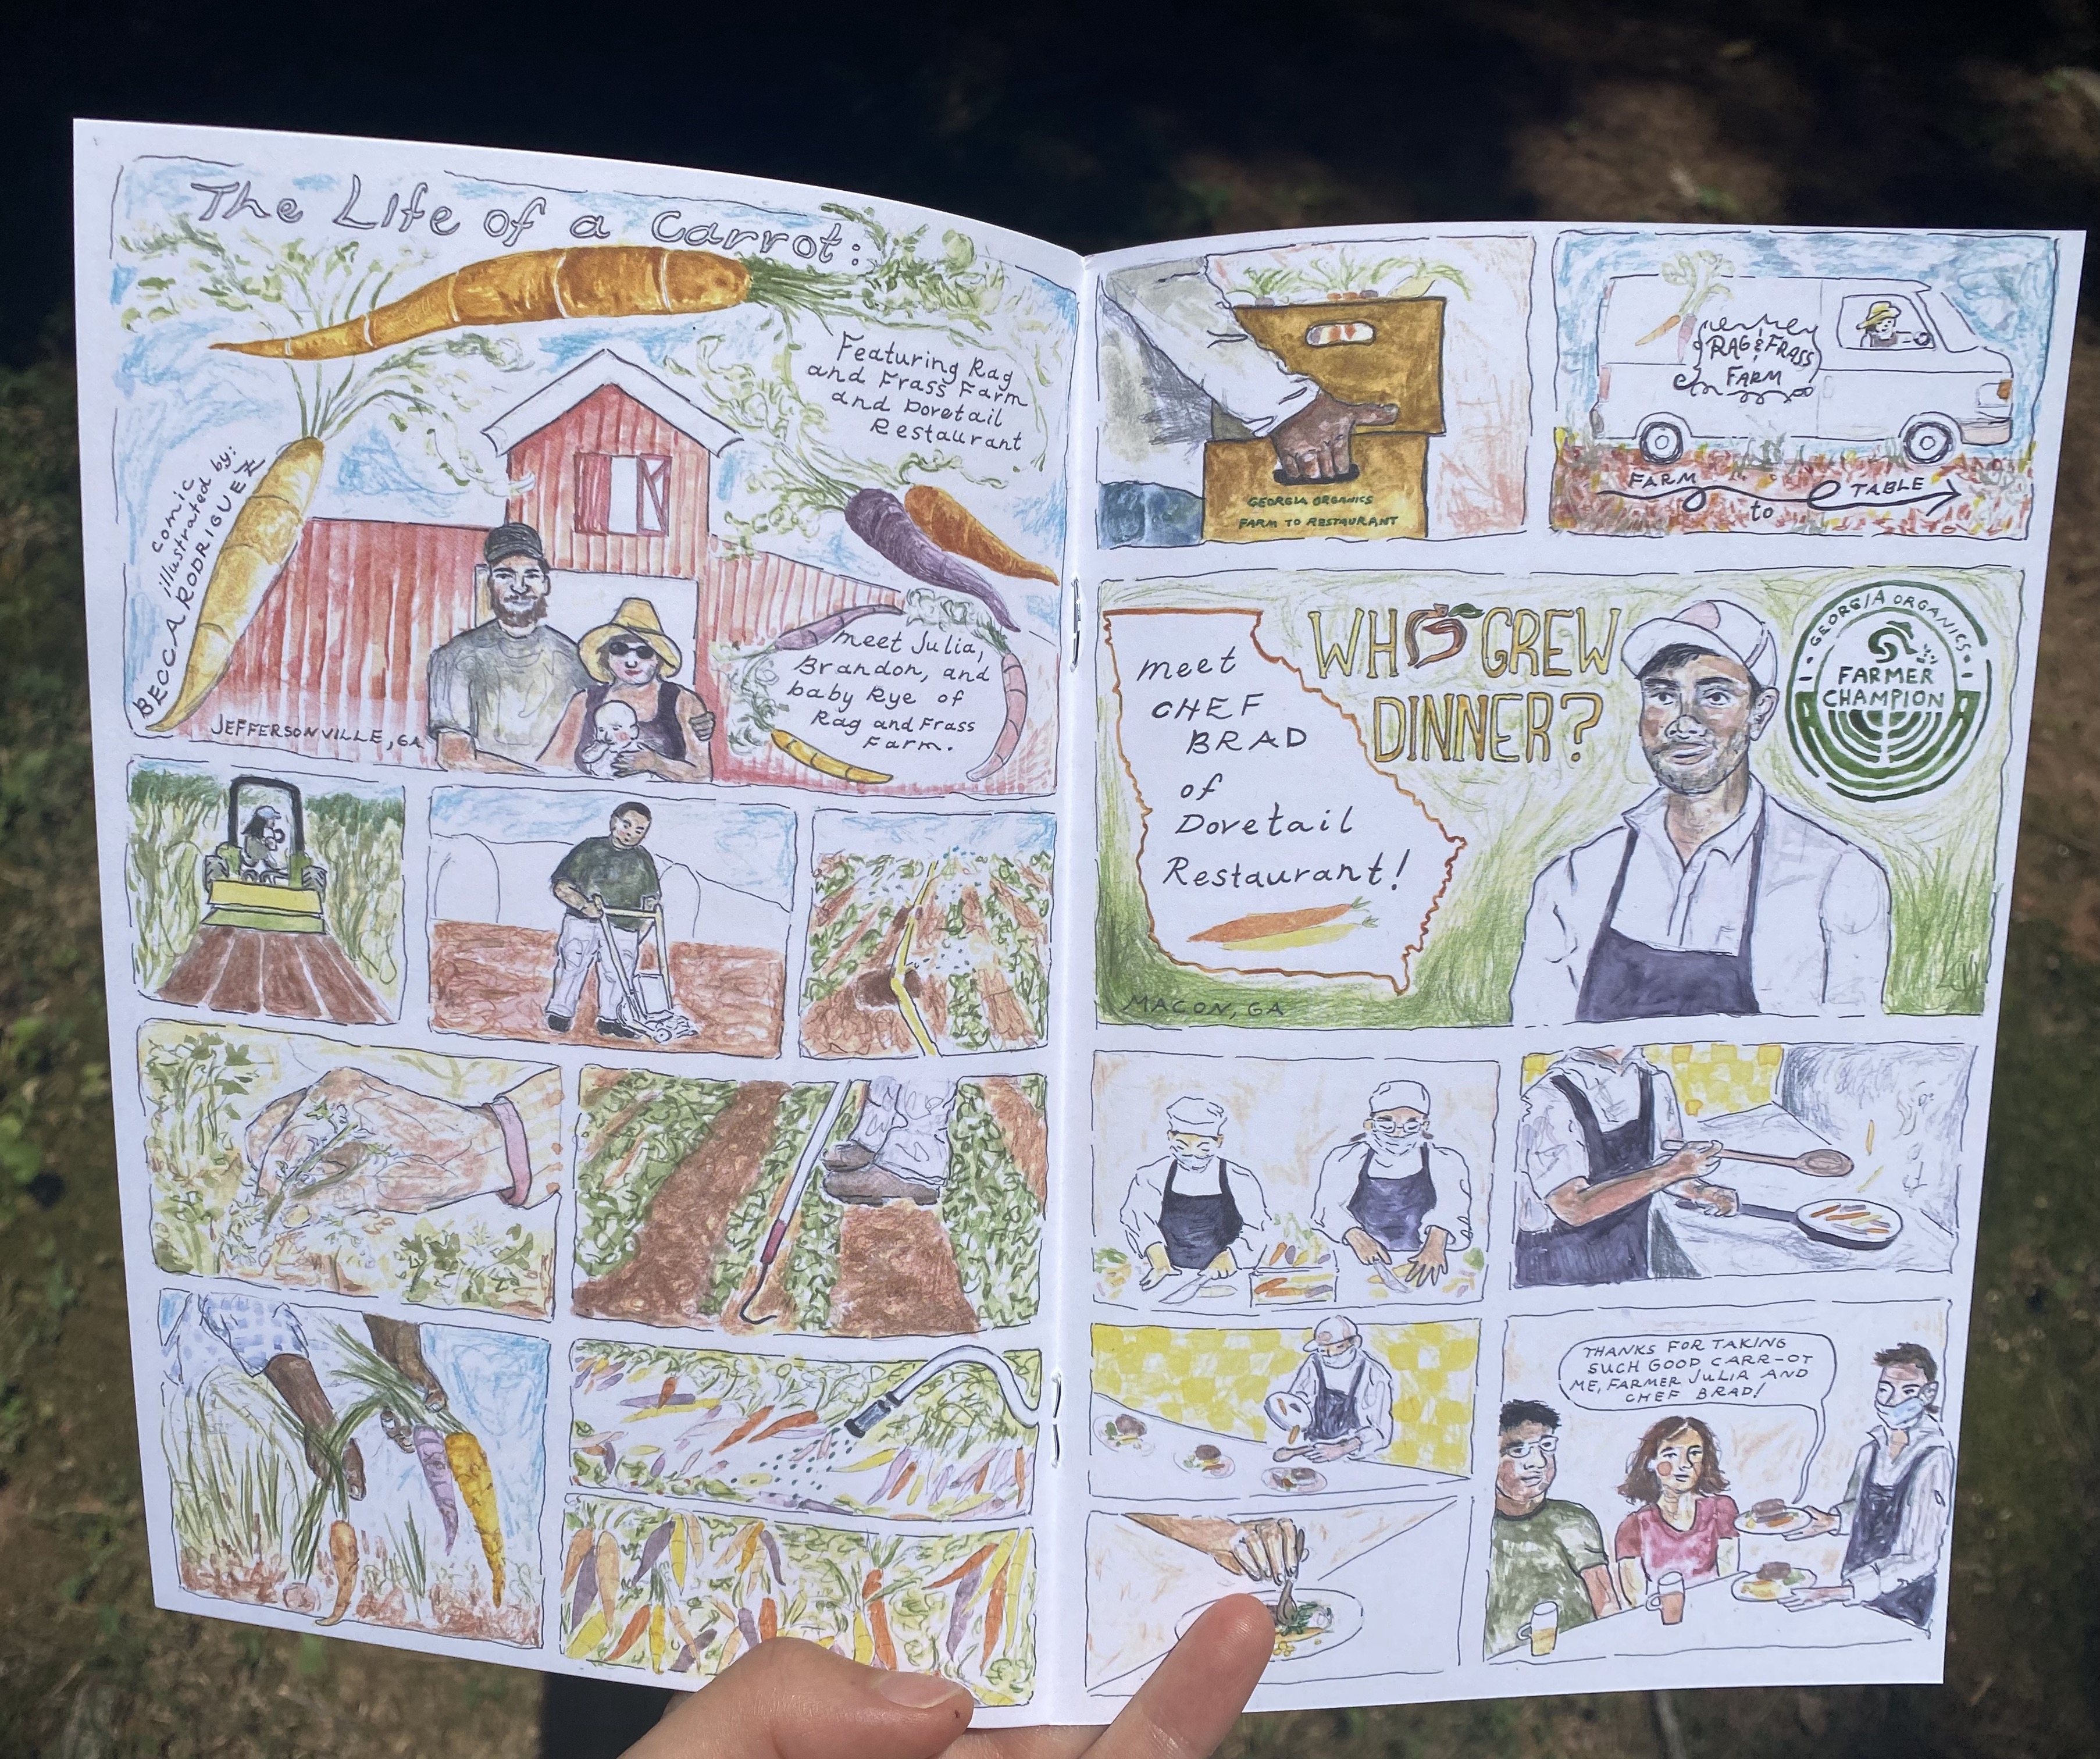 The Life of a Carrot:
Featuring Rag
and Frass Farm
and Dovetail
Restaurant
comic
illustrated by:
BECCA RODRIGUEZ
meet Julia,
Brandon, and
baby Rye of
Rag and Frass
Farm.
JEFFERSONVILLE, GA
GEORGIA ORGANICS
FARM TO RESTAURANT
RAG & FRASS
FARM
FARM
to
TABLE
meet
CHEF
BRAD
of
Dovetail
Restaurant!
WHO GREW
DINNER?
GEORGIA ORGANICS
FARMER
CHAMPION
MACON, GA
THANKS FOR TAKING
SUCH GOOD CARR-OT
ME, FARMER JULIA AND
CHEF BRAD!